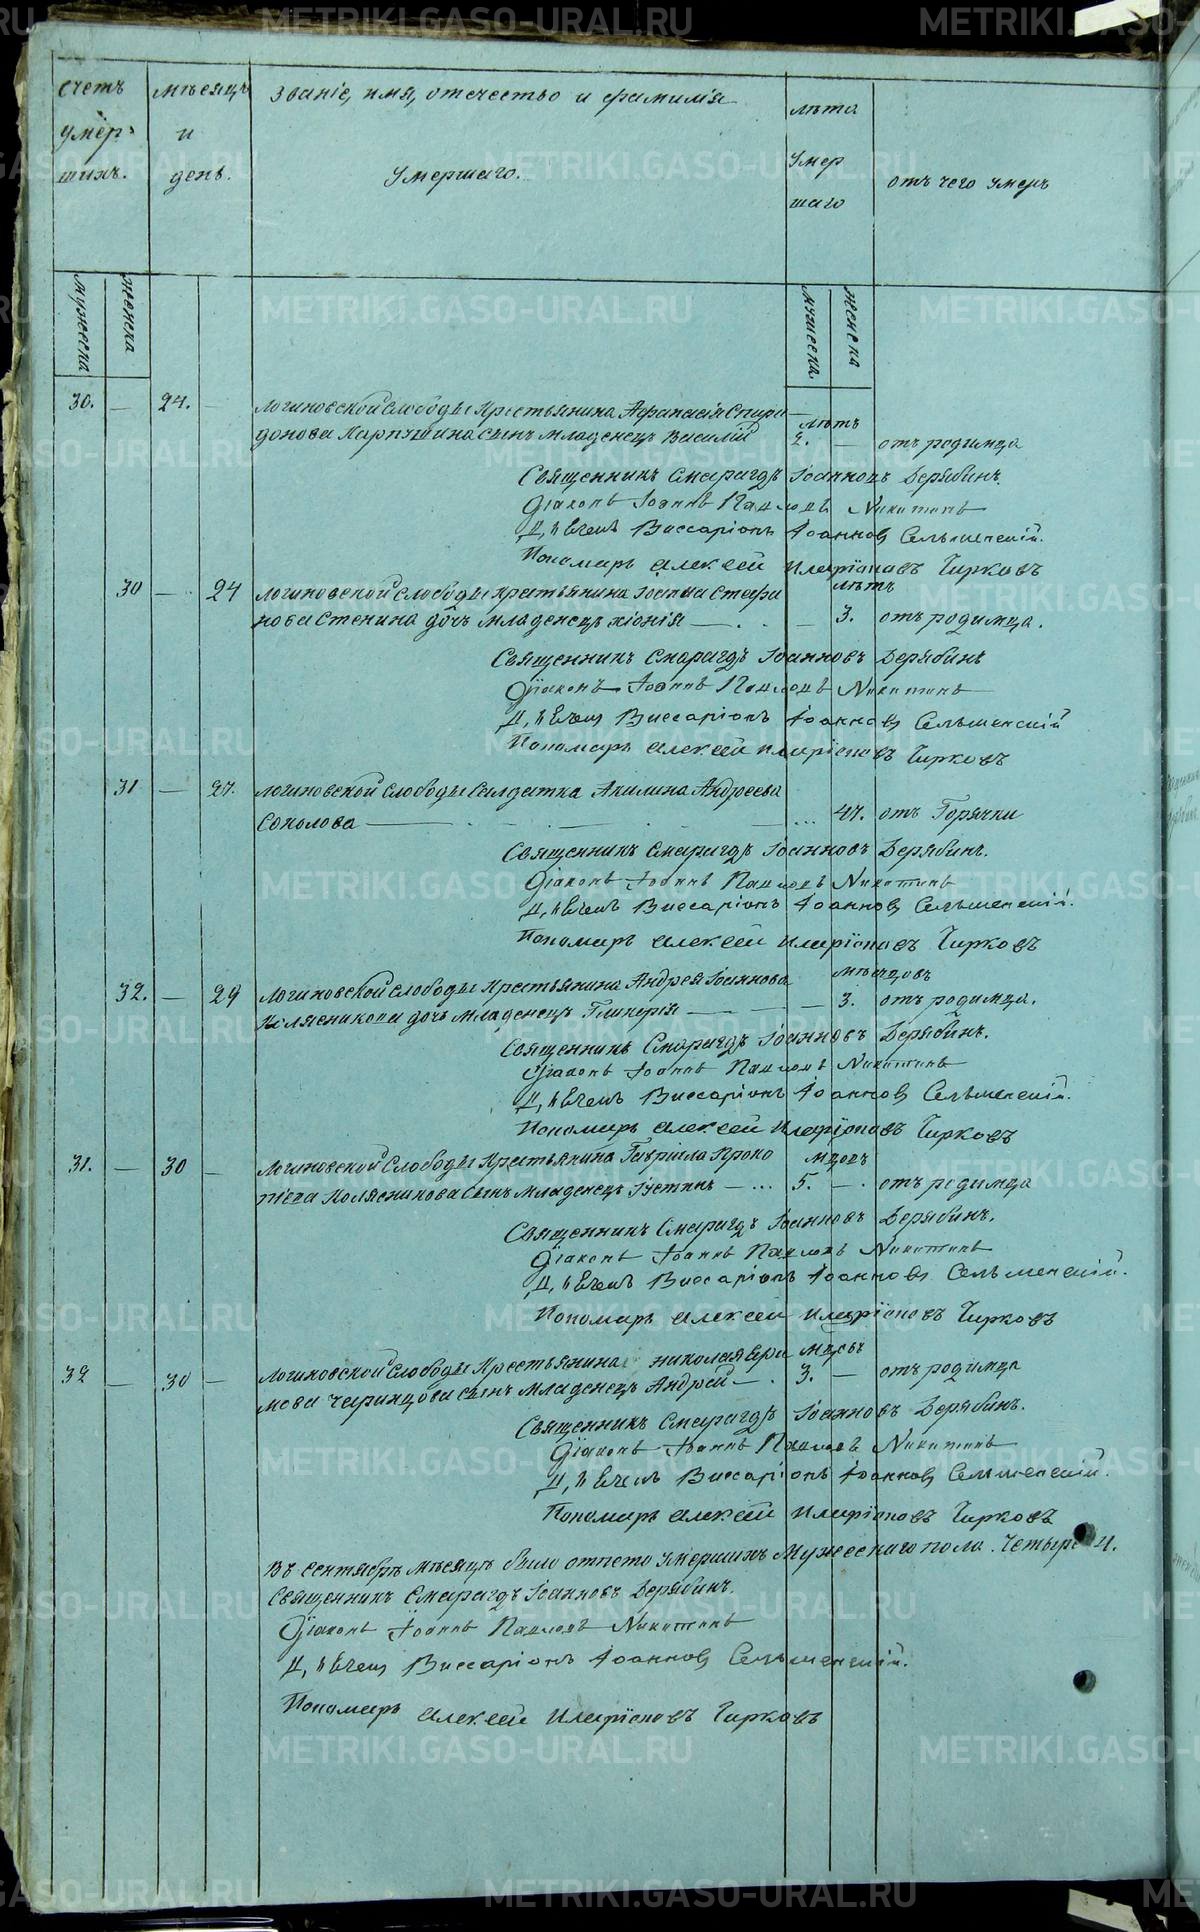 счетъ умер- шихъ.
мѣсяцъ и день.
Званіе, имя, отечество и фамилія
умершаго.
лѣта умер шаго
отъ чего умеръ
мужеска
женска
мужеска
женска
30. — 24. — Логиновской слободы Крестьянина Афанасія Спири
донова Карпушина сынъ младенецъ Василій лѣтъ 2. — отъ родимца
Священникъ Смарагдъ Іоанновъ Дерябинъ.
Діаконъ Іоаннъ Павловъ Никитинъ
Виссаріонъ Іоанновъ Сельменскій.
Пономарь Алексей Иларіоновъ Чирковъ
30 — 24 Логиновской слободы Крестьянина Іоанна Стефа
нова Стенина дочь младенецъ Хіонія — лѣтъ 3. отъ родимца.
Священникъ Смарагдъ Іоанновъ Дерябинъ
Діаконъ Іоаннъ Павловъ Никитинъ
Виссаріонъ Іоанновъ Сельменскій
Пономарь Алексей Иларіоновъ Чирковъ
31 — 27. Логиновской слободы Салдатка Акилина Андреева
Соколова — 47. отъ Горячки
Священникъ Смарагдъ Іоанновъ Дерябинъ.
Діаконъ Іоаннъ Павловъ Никитинъ
Виссаріонъ Іоанновъ Сельменскій.
Пономарь Алексей Иларіоновъ Чирковъ
32. — 29 Логиновской слободы Крестьянина Андрея Іоаннова
Колясникова дочь младенецъ Гликерія — мѣсяцовъ — 3. отъ родимца.
Священникъ Смарагдъ Іоанновъ Дерябинъ.
Діаконъ Іоаннъ Павловъ Никитинъ
Виссаріонъ Іоанновъ Сельменскій.
Пономарь Алексей Иларіоновъ Чирковъ
31. — 30 — Логиновской слободы Крестьянина Гавріила Проко
піева Колясникова сынъ младенецъ Іустинъ — мцовъ 5. — отъ родимца
Священникъ Смарагдъ Іоанновъ Дерябинъ.
Діаконъ Іоаннъ Павловъ Никитинъ
Виссаріонъ Іоанновъ Сельменскій.
Пономарь Алексей Иларіоновъ Чирковъ
32 — 30 — Логиновской слободы Крестьянина Николая
сынъ младенецъ Андрей — 3. — отъ родимца
Священникъ Смарагдъ Іоанновъ Дерябинъ.
Діаконъ Іоаннъ Павловъ Никитинъ
Виссаріонъ Іоанновъ Сельменскій.
Пономарь Алексей Иларіоновъ Чирковъ
Въ сентябрѣ мѣсяцѣ было отпето умершихъ Мужескаго пола. Четыре 4.
Священникъ Смарагдъ Іоанновъ Дерябинъ.
Діаконъ Іоаннъ Павловъ Никитинъ
Виссаріонъ Іоанновъ Сельменскій.
Пономарь Алексей Иларіоновъ Чирковъ
METRIKI.GASO-URAL.RU